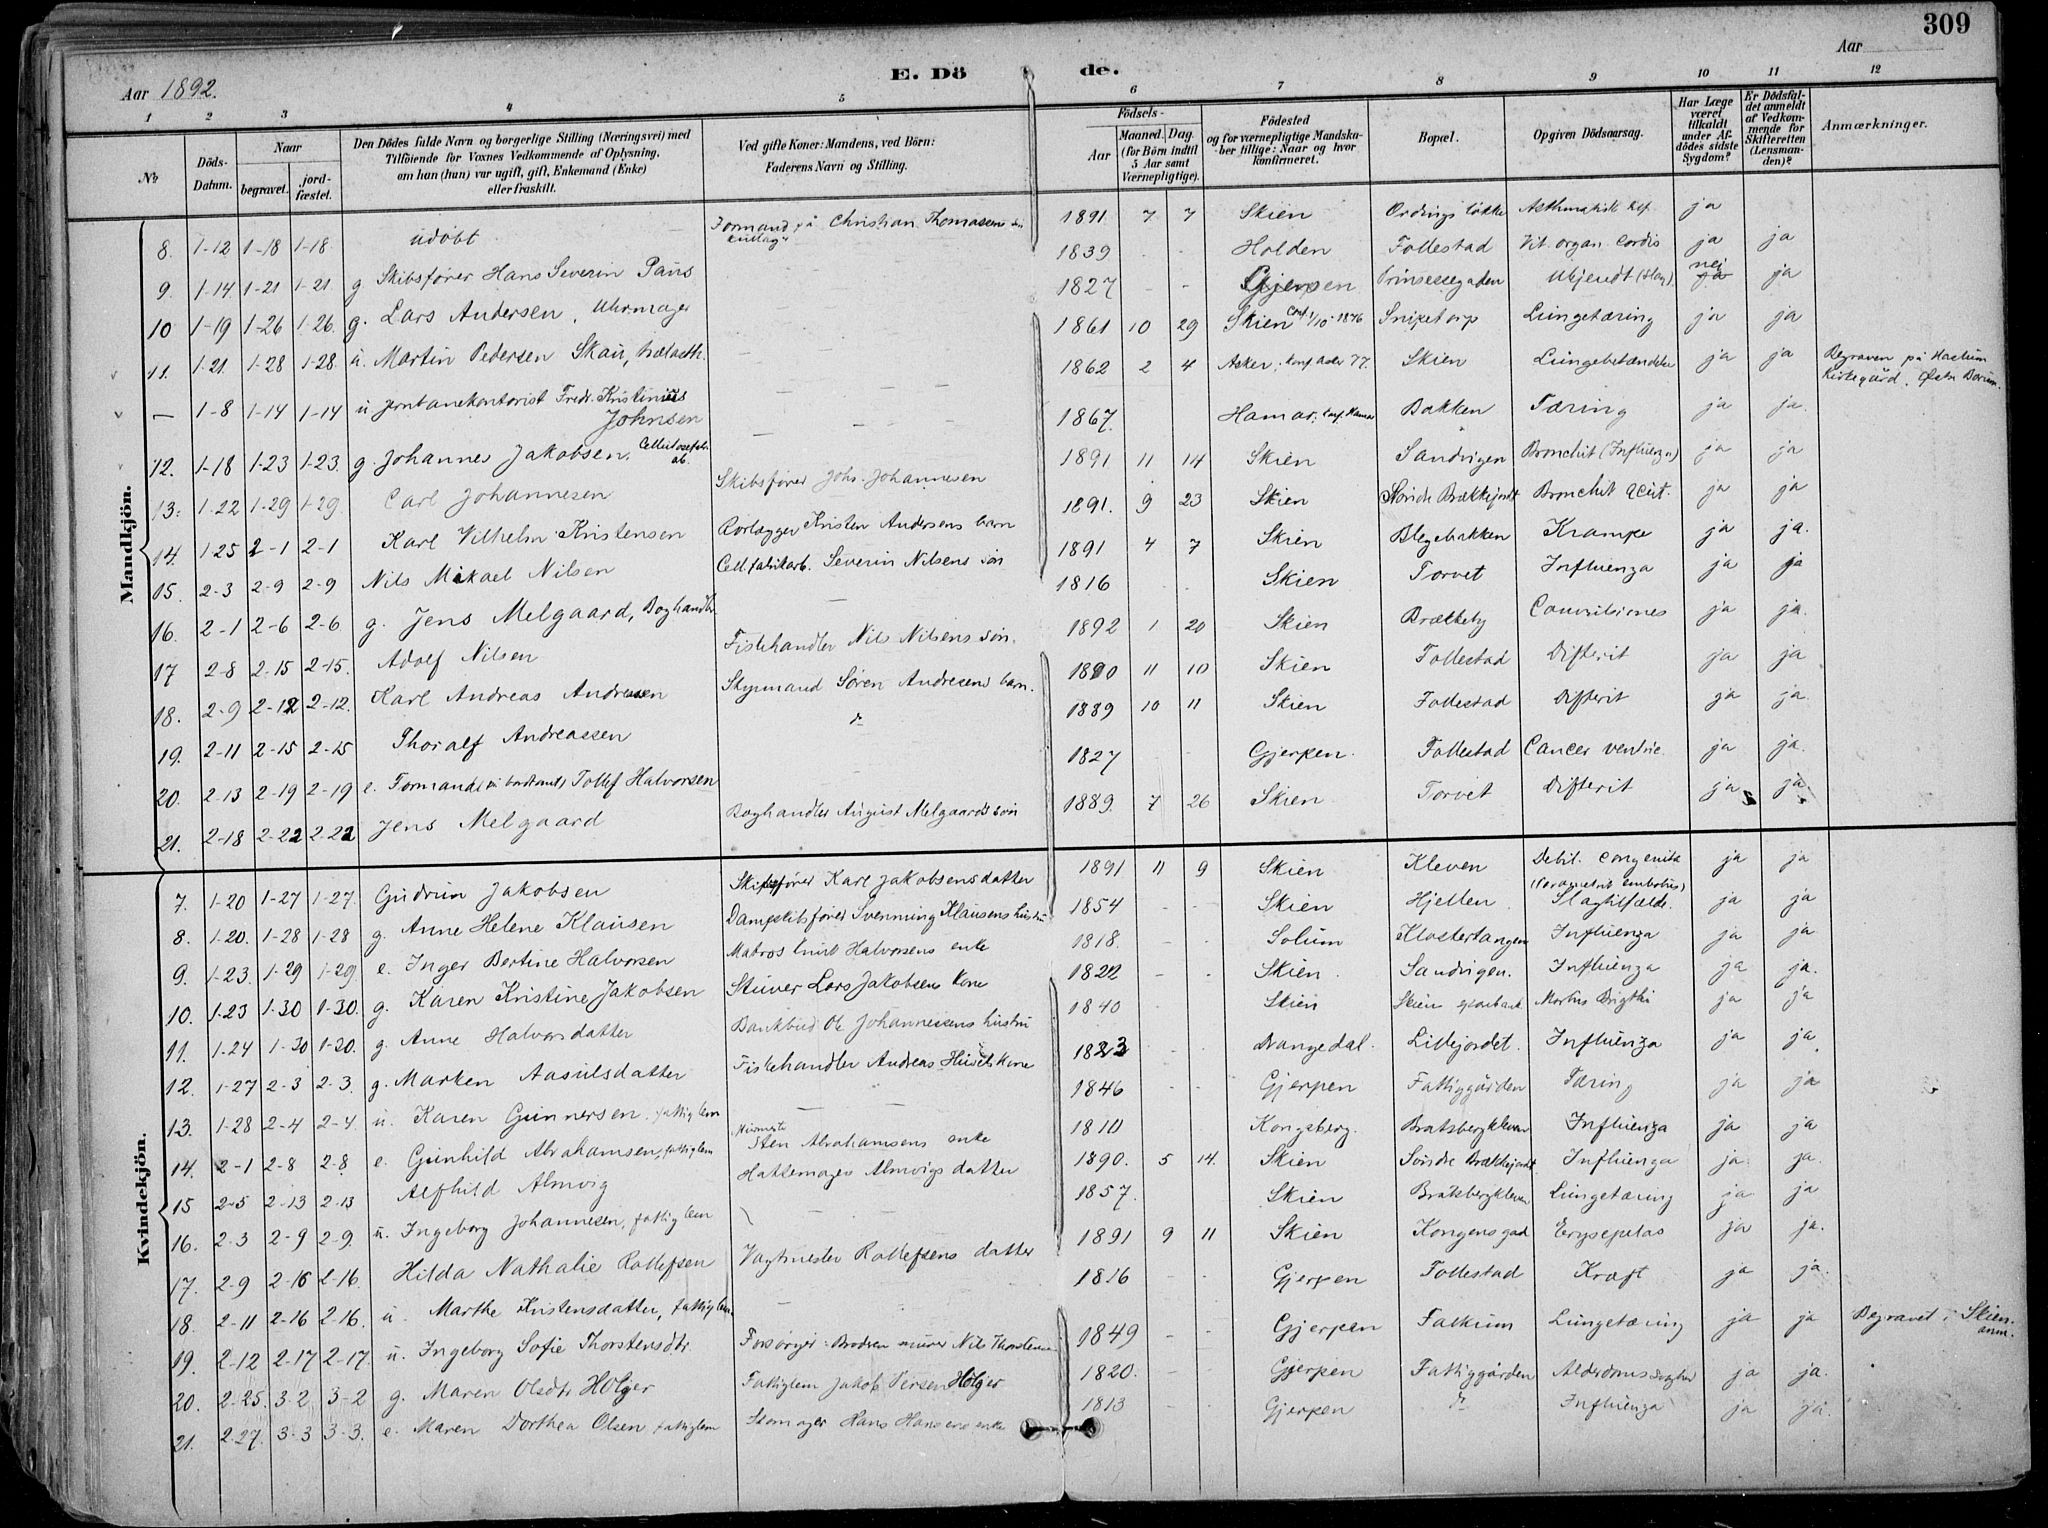 309
Aar 1892.
E. Döde.
Aar
1 2 3 4 5 6 7 8 9 10 11 12
No
Döds-Datum.
Naar
begravet.
jord-fæstet.
Den Dödes fulde Navn og borgerlige Stilling (Næringsvei) med
Tilföiende for Voxnes Vedkommende af Oplysning,
om han (hun) var ugift, gift, Enkemand (Enke)
eller fraskilt.
Ved gifte Koner: Mandens, ved Börn:
Faderens Navn og Stilling.
Födsels-
Aar
Maaned. Dag.
(for Börn indtil 5 Aar samt Værnepligtige).
Födested
og for værnepligtige Mandskaber tillige: Naar og hvor konfirmeret.
Bopæl.
Opgiven Dödsaarsag.
Har Læge været tilkaldt under Afdödes sidste Sygdom?
Er Dödsfaldet anmeldt af Vedkommende for Skifteretten (Lensmanden)?
Anmærkninger.
Mandkjön.
8. 1-12 1-18 1-18 udöbt Formand på Christian Thomasens sön 1891 7 7 Skien Ordnings løkke Asthmatisk ja
9. 1-14 1-21 1-21 g Skibsfører Hans Severin Paus 1839 - - Holden Follestad Vit. organ. Cordis ja ja
10 1-19 1-26 1-26. g. Lars Andersen, Uhrmager 1827 - - Gjerpen Prinsessegaden Ubjendt (Slag) nei ja
11. 1-21. 1-28 1-28. u. Martin Pedersen Skau 1861 10 29 Skien Conf. 1/10-1876 Snipetorp Lungetæring ja ja
— 1-8 1-14 1-14 u Jernbanekontorist Fredr. Kristinius Johnsen 1862 2 4 Asker, konf. Asker 77. Skien Lungebetændelse ja ja Begraven på Haslum Kirkegård, Østre Bærum.
12. 1-18 1-23 1-23. g. Johannes Jakobsen, Cellulosefab. arb. 1867. Hamar, konf. Hamar Bakken Tæring ja ja.
13. 1-22 1-29 1-29. Carl Johannesen Skibsfører Johs. Johannesen 1891 11 14 Skien Sandvigen Bronchit (Influenza) ja ja
14. 1-25 2-1 2-1 Karl Vilhelm Kristensen Rørlægger Kristen Andersens barn 1891. 9 23 Skien Søndre Brækkejordt Bronchit acut. ja ja
15. 2-3 2-9 2-9 Nils Mikael Nilsen Cell. fabrikarb. Severin Nilsens søn 1891 4 7 Skien Blegebakken Krampe ja ja.
16. 2-1 2-6 2-6 g. Jens Melgaard, Boghandler 1816 Skien Torvet Influenza ja ja
17 2-8 2-15 2-15. Adolf Nilsen Fiskehandler Nils Nilsens søn. 1892 1 20 Skien Brækkeby Convulsiones ja ja.
18. 2-9 2-12 2-12. Karl Andreas Andreasen Styrmand Søren Andresens barn. 1890 11 10 Skien Follestad Difterit ja ja
19. 2-11 2-15 2-15 Thoralf Andreassen 1889 10 11 Skien Follestad Difterit ja ja.
20. 2-13 2-19 2-19 e. Formand Tollef Halvorsen 1827 - - Gjerpen. Follestad Cancer ventric. ja ja.
21. 2-18 2-22 2-22 Jens Melgaard Boghandler August Melgaards søn 1889. 7 26 Skien Torvet Difterit ja ja.
Kvindekjön.
7. 1-20 1-27 1-27. Gudrun Jakobsen Skibsfører Karl Jakobsens datter 1891 11 9 Skien Kleven Debil. congenita ja ja
8. 1-20. 1-28 1-28 g. Anne Helene Klausen Dampskibsfører Svenning Klausens hustru 1854 - - Skien Hjellen (Parametrit embolus) Slagtilfælde ja ja
9. 1-23. 1-29 1-29. e. Inger Bertine Halvorsen Matros Knut Halvorsens enke 1818. - Solum Klostertangen Influenza ja ja
10. 1-23 1-30 1-30. g. Karen Kristine Jakobsen Stuver Lars Jakobsens kone 1822 - - Skien. Sandvigen. Influenza ja ja.
11. 1-24 1-30 1-30. g. Anne Halvorsdatter Bankbud Ole Johannesens hustru 1840 Skien Skiens sparebank Morbus Brigthi ja ja
12. 1-27 2-3 2-3. g. Marken Aasulsdatter Fiskehandler Andreas kone 1823 - - Drangedal. Lillejordet. Influenza ja ja
13. 1-28 2-4 2-4. u. Karen Gunnersen. fattiglem 1846 - - Gjerpen Fattiggården Tæring ja ja
14. 2-1 2-8 2-8. e. Gunhild Abrahamsen, fattiglem Sten Abrahamsens enke 1810 - Kongsberg. Bratsbergkleven Influenza ja ja
15 2-5 2-13 2-13 Alfhild Almvig Hattemager Almvigs datter 1890. 5 14. Skien Søndre Brækkejordt Influenza ja ja.
16. 2-3 2-9 2-9. u. Ingeborg Johannesen, fattiglem 1857. Skien Bratsbergkleven Lungetæring ja ja
17. 2-9 2-16 2-16. Hilda Nathalie Rollefsen Vagtmester Rollefsens datter 1891 9 11 Skien Kongensgad Erysepelas ja ja.
18. 2-11 2-16 2-16. u. Marthe Kristensdatter, fattiglem 1816 - Gjerpen Follestad Kræft ja ja.
19. 2-12 2-17 2-17. u. Ingeborg Sofie Thorstensdtr. Forsørger: Brodren murer Nils Thorstensen 1849 - - Gjerpen Falkum Lungetæring ja ja Begravet i Skien. anm.
20. 2-25. 3-2 3-2 g. Maren Olsdtr Holger Fattiglem Jakob Persen Holger 1820. - - Gjerpen Fattiggården Alderdomssvaghed ja ja.
21. 2-27. 3-3 3-3. e. Maren Dorthea Olsen fattiglem Skomager Hans Hansens enke 1813 - Gjerpen Influenza ja ja.